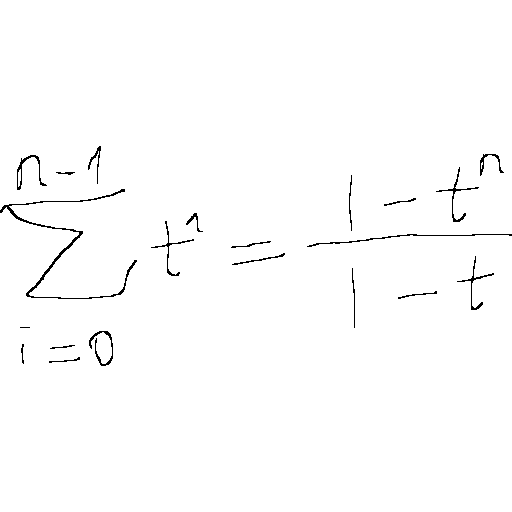 \sum_{i=0}^{n-1} t^{i} = \frac{1-t^{n}}{1-t}